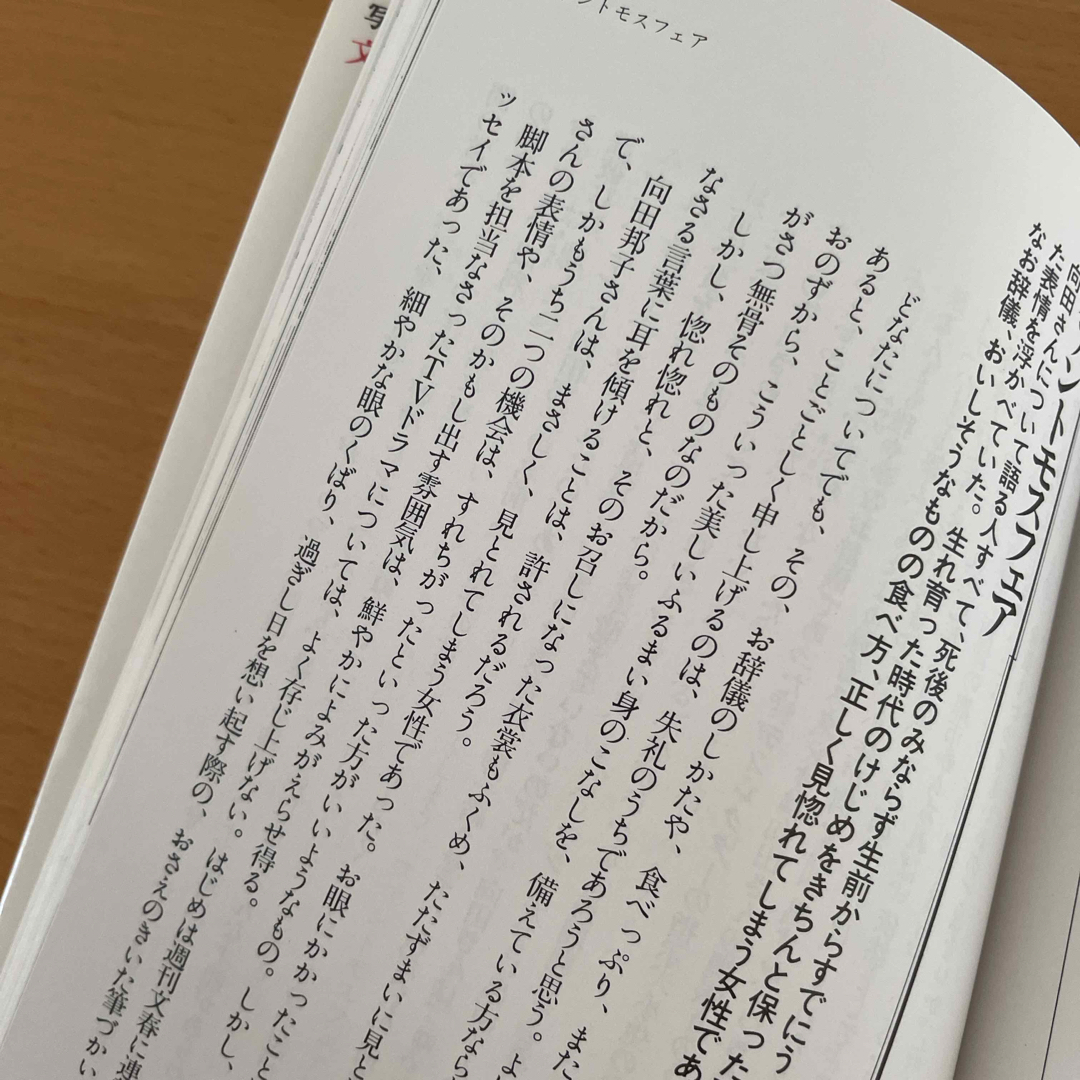 ントモスフェア
ントモスフェア
向田さんについて語る人すべて、死後のみならず生前からすでにう
た表情を浮かべていた。生れ育った時代のけじめをきちんと保った
なお辞儀、おいしそうなものの食べ方、正しく見惚れてしまう女性であ
どなたについてでも、その、お辞儀のしかたや、食べっぷり、また
あると、ことごとしく申し上げるのは、失礼のうちであろうと思う。よ
おのずから、こういった美しいふるまい身のこなしを、備えている方なら
がさつ無骨そのものなのだから。
しかし、惚れ惚れと、そのお召しになった衣裳もふくめ、たたずまいに見と
なさる言葉に耳を傾けることは、許されるだろう。
向田邦子さんは、まさしく、見とれてしまう女性であった。お眼にかかったこと
で、しかもうち二つの機会は、すれちがったといった方がいいようなもの。しかし、
さんの表情や、そのかもし出す雰囲気は、鮮やかによみがえらせ得る。
脚本を担当なさったTVドラマについては、よく存じ上げない。はじめは週刊文春に連
ッセイであった、細やかな眼のくばり、過ぎし日を想い起す際の、おさえのきいた筆づかい
文